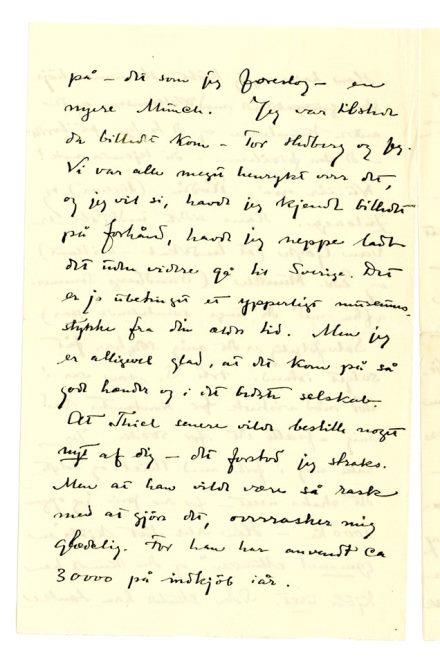 på – det som jeg foreslog – en
nyere Munch. Jeg var tilstede
da billedet kom – Tor Hedberg og jeg.
Vi var alle meget henrykt over det,
og jeg vil si, havde jeg kjendt billedet
på forhånd, havde jeg neppe ladt
det uden videre gå til Sverige. Det
er jo ubetinget et ypperligt museums-
stykke fra din ældre tid. Men jeg
er alligevel glad, at det kom på så
gode hænder og i det bedste selskab.
At Thiel senere vilde bestille noget
nyt af dig – det forstod jeg straks.
Men at han vilde være så rask
med at gjøre det, overrasker mig
glædelig. For han har anvendt ca
30000 på indkjøb iår.